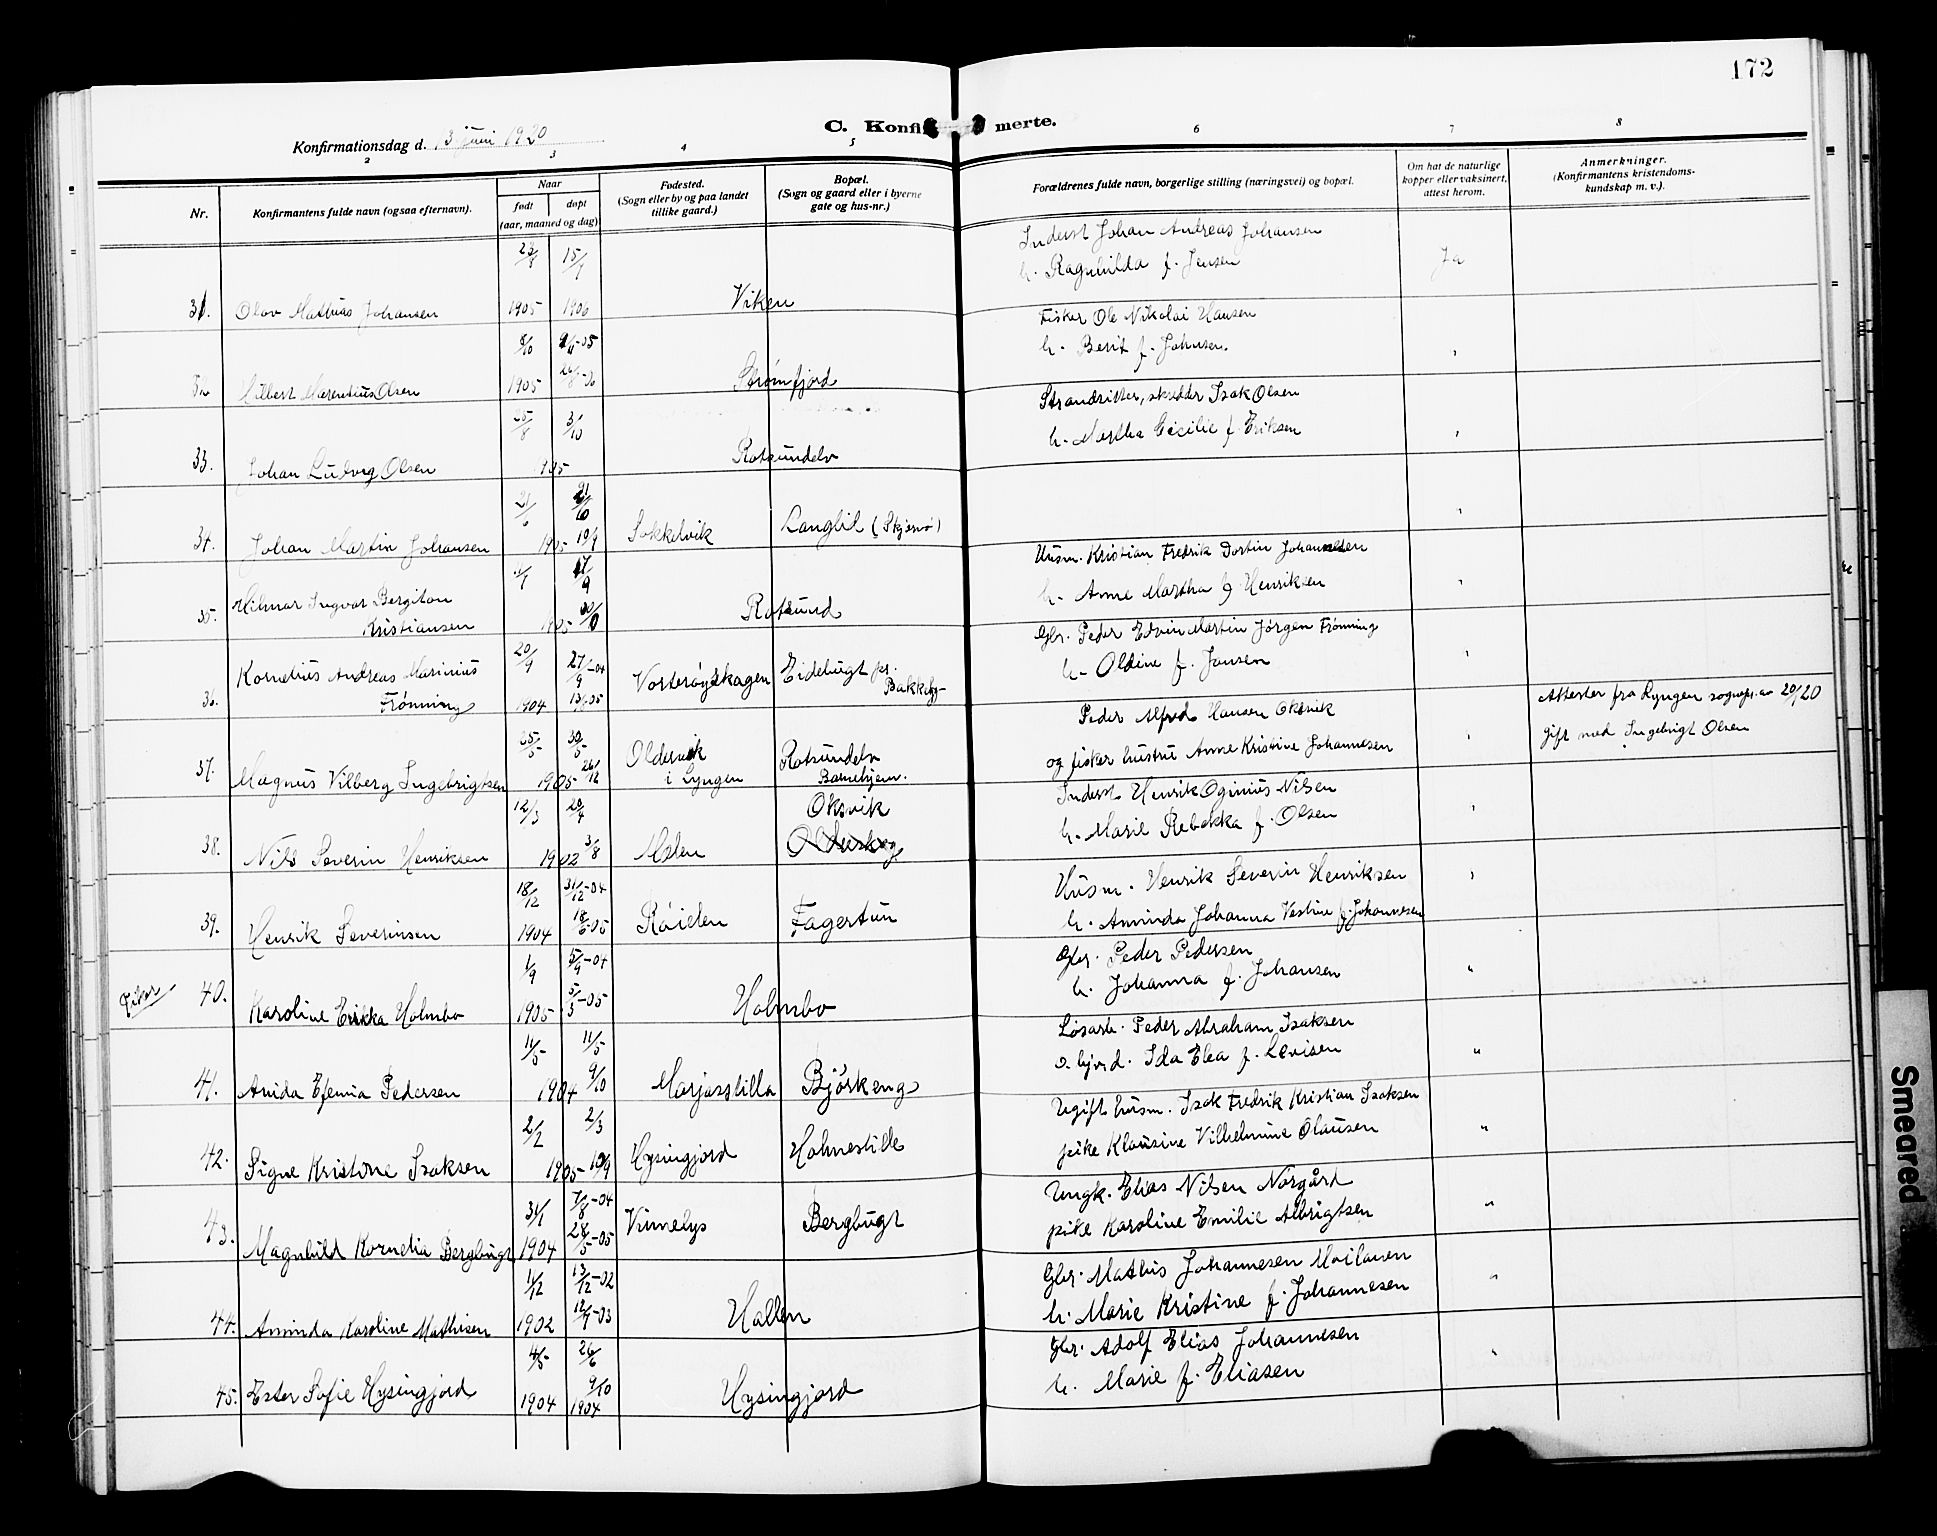 172
C. Konfi merte.
Konfirmationsdag d. 13 juni 1920
2 3 4 5 6 7 8
Nr.
Konfirmantens fulde navn (ogsaa efternavn).
Naar
født døpt
(aar, maaned og dag)
Fødested.
(Sogn eller by og paa landet
tillike gaard.)
Bopæl.
(Sogn og gaard eller i byerne
gate og hus-nr.)
Forældrenes fulde navn, borgerlige stilling (næringsvei) og bopæl.
Om hat de naturlige
kopper eller vaksinert,
attest herom.
Anmerkninger.
(Konfirmantens kristendoms-
kundskap m. v.).
Inderst Johan Andreas Johansen
h. Ragnhilda f. Jensen Ja
15/1
31. Olav Mathias Johansen 1905 1906 Viken
Fisker Ole Nikolai Hansen
h. Berit f. Johnsen.
Hilbert Marentius Olsen 1905 Strømfjord
Strandsitter, skredder Isak Olsen
h. Martha Cecilie f. Eriksen
25/8 3/10
33. Johan Ludvig Olsen 1905 Rotsundelv
34. Johan Martin Johansen 1905 Sokkelvik Langlil (Skjervø)
Husm. Kristian Fredrik Dortin Johannesen
h. Anne Martha f Henriksen
35. Hilmar Ingvar Bergiton
Kristiansen 1905 Rotsund
Gbr. Peder Edvin Martin Jørgen Frønning
h. Oldine f. Jansen
20/9 27/9-04
36. Kornelius Andreas Marinius
Frønning 1904 Vorterøyskagen Eidebugt pr.
Bakkeby
Peder Alfred Hansen Oksvik
og fisker hustru Anne Kristine Johannesen
Attester fra Lyngen sognepr. av 20/1 20
gift med Ingebrigt Olsen
25/5 30/5
37. Magnus Vilberg Ingebrigtsen 1905 26/12 Oldervik
i Lyngen Rotsundelv
Barnehjem.
Inderst Henrik Oginius Nilsen
h. Marie Rebekka f. Olsen
12/3 20/4 Oksvik
38. Nils Severin Henriksen 1902 3/8 Molen
Husm. Henrik Severin Henriksen
h. Aminda Johanna Vestine f. Johannesen
18/12 31/12-04
39. Henrik Severinsen 1904 18/6-05 Røielen Fagertun
Gbr. Peder Pedersen
h. Johanna f. Johansen "
Piker
1/9 5/9-04
40. Karoline Erikka Holmbo 1905 5/3-05 Holmbo
Løsarb. Peder Abraham Isaksen
o. hjvrd. Ida Elea f. Levisen "
11/5 11/5
41. Anida Efenia Pedersen 1904 9/10 Marjasslilla Bjørkeng
Ugift husm. Isak Fredrik Kristian Isaksen
pike Klausine Vilhelmine Olausen "
2/2 2/3
42. Signe Kristine Isaksen 1905 10/9 Hysingjord Holmestille
Ungk. Elias Nilsen Norgård
pike Karoline Emilie Albrigtsen "
31/1 7/8-04
43. Magnhild Kornelia Bergbugt 1904 28/5-05 Vinnelys Bergbugt
Gbr. Mathis Johannesen Moilanen
h. Marie Kristine f. Johannesen "
11/12 13/12-02
44. Aminda Karoline Mathisen 1902 12/7-03 Hallen
Gbr. Adolf Elias Johannesen
h. Marie f. Eliasen "
4/5 26/6
45. Ester Sofie Hysingjord 1904 9/10
1904 Hysingjord
Smeared